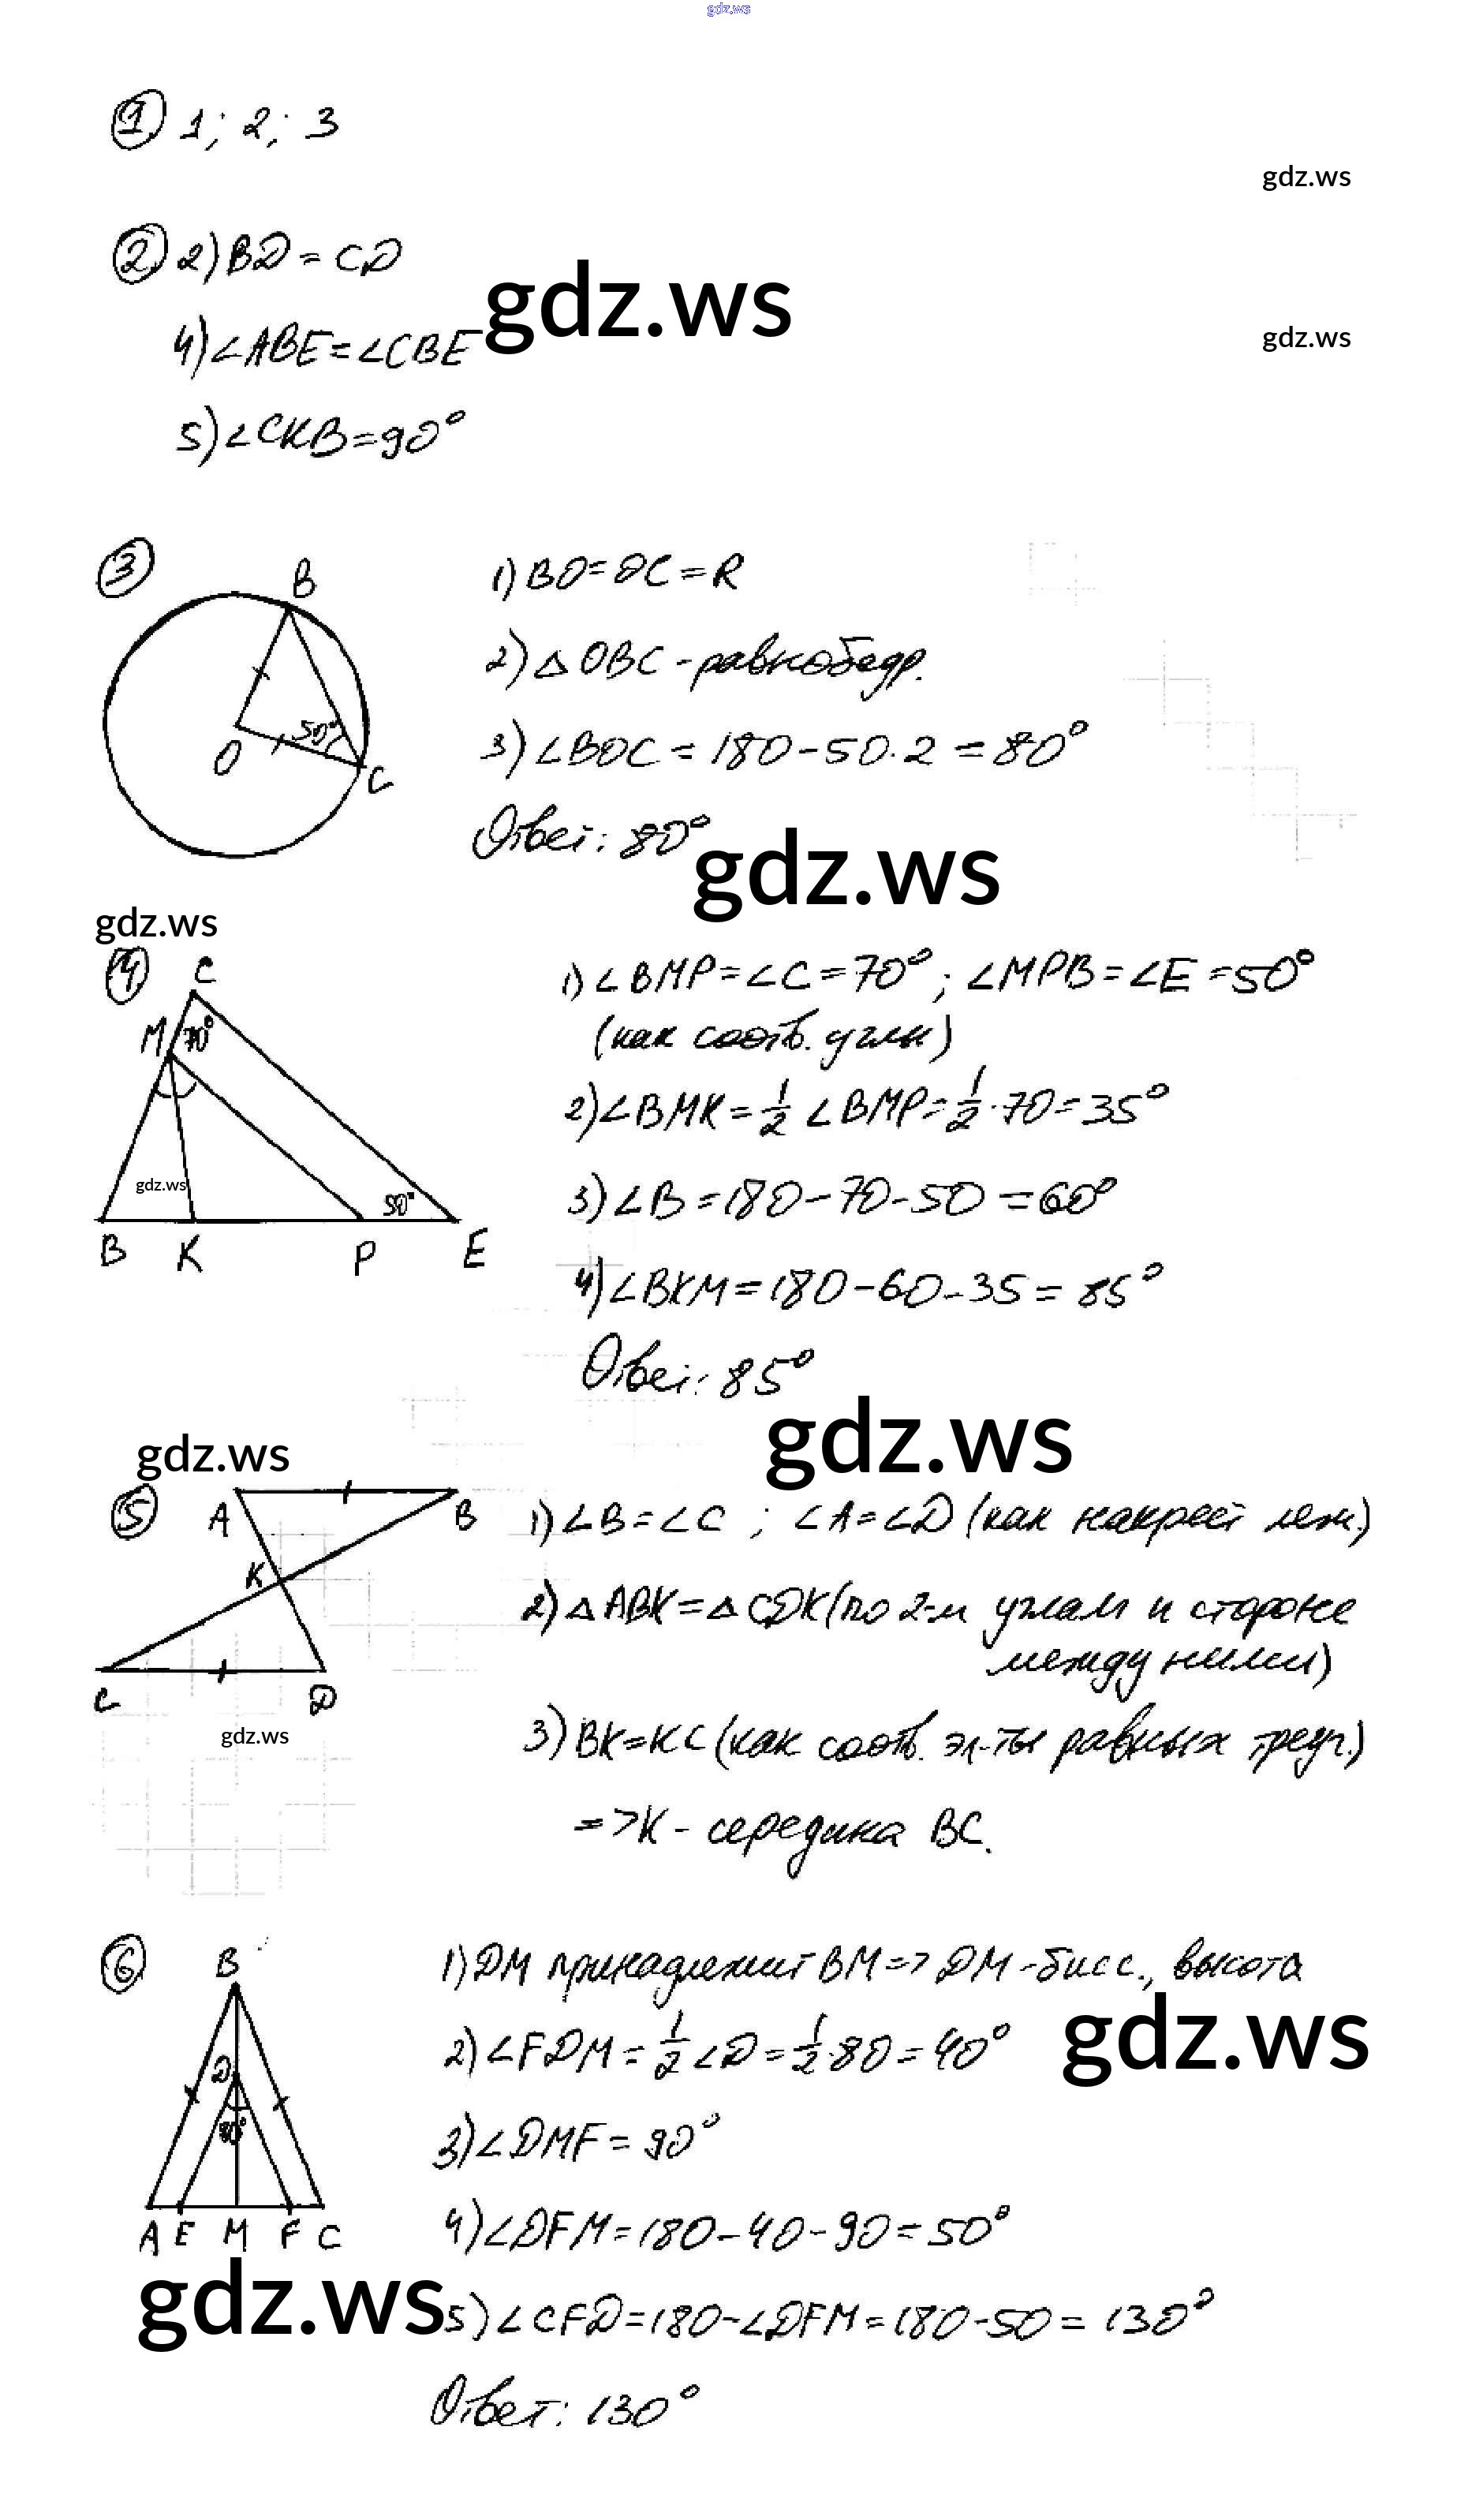 gdz.ws
① 1; 2; 3
gdz.ws
② 2) BD = CD
gdz.ws
4) ∠ABE = ∠CBE
gdz.ws
5) ∠CKB = 90°
③
B
O
50°
C
1) BO = OC = R
2) △OBC - равнобедр.
3) ∠BOC = 180 - 50·2 = 80°
Ответ: 80°
gdz.ws
gdz.ws
④
C
M
70°
gdz.ws
50°
B K P E
1) ∠BMP = ∠C = 70° ; ∠MPB = ∠E = 50°
(как соотв. углы)
2) ∠BMK = 1/2 ∠BMP = 1/2 · 70 = 35°
3) ∠B = 180 - 70 - 50 = 60°
4) ∠BKM = 180 - 60 - 35 = 85°
Ответ: 85°
gdz.ws
gdz.ws
⑤
A B
K
C D
gdz.ws
1) ∠B = ∠C ; ∠A = ∠D (как накрест леж.)
2) △ABK = △CDK (по 2-м углам и стороне
между ними)
3) BK = KC (как соотв. эл-ты равных треуг.)
=> K - середина BC.
⑥
B
D
80°
A E M F C
1) DM принадлежит BM => DM - бисс., высота
gdz.ws
2) ∠FDM = 1/2 ∠D = 1/2 · 80 = 40°
3) ∠DMF = 90°
4) ∠DFM = 180 - 40 - 90 = 50°
gdz.ws
5) ∠CFD = 180 - ∠DFM = 180 - 50 = 130°
Ответ: 130°